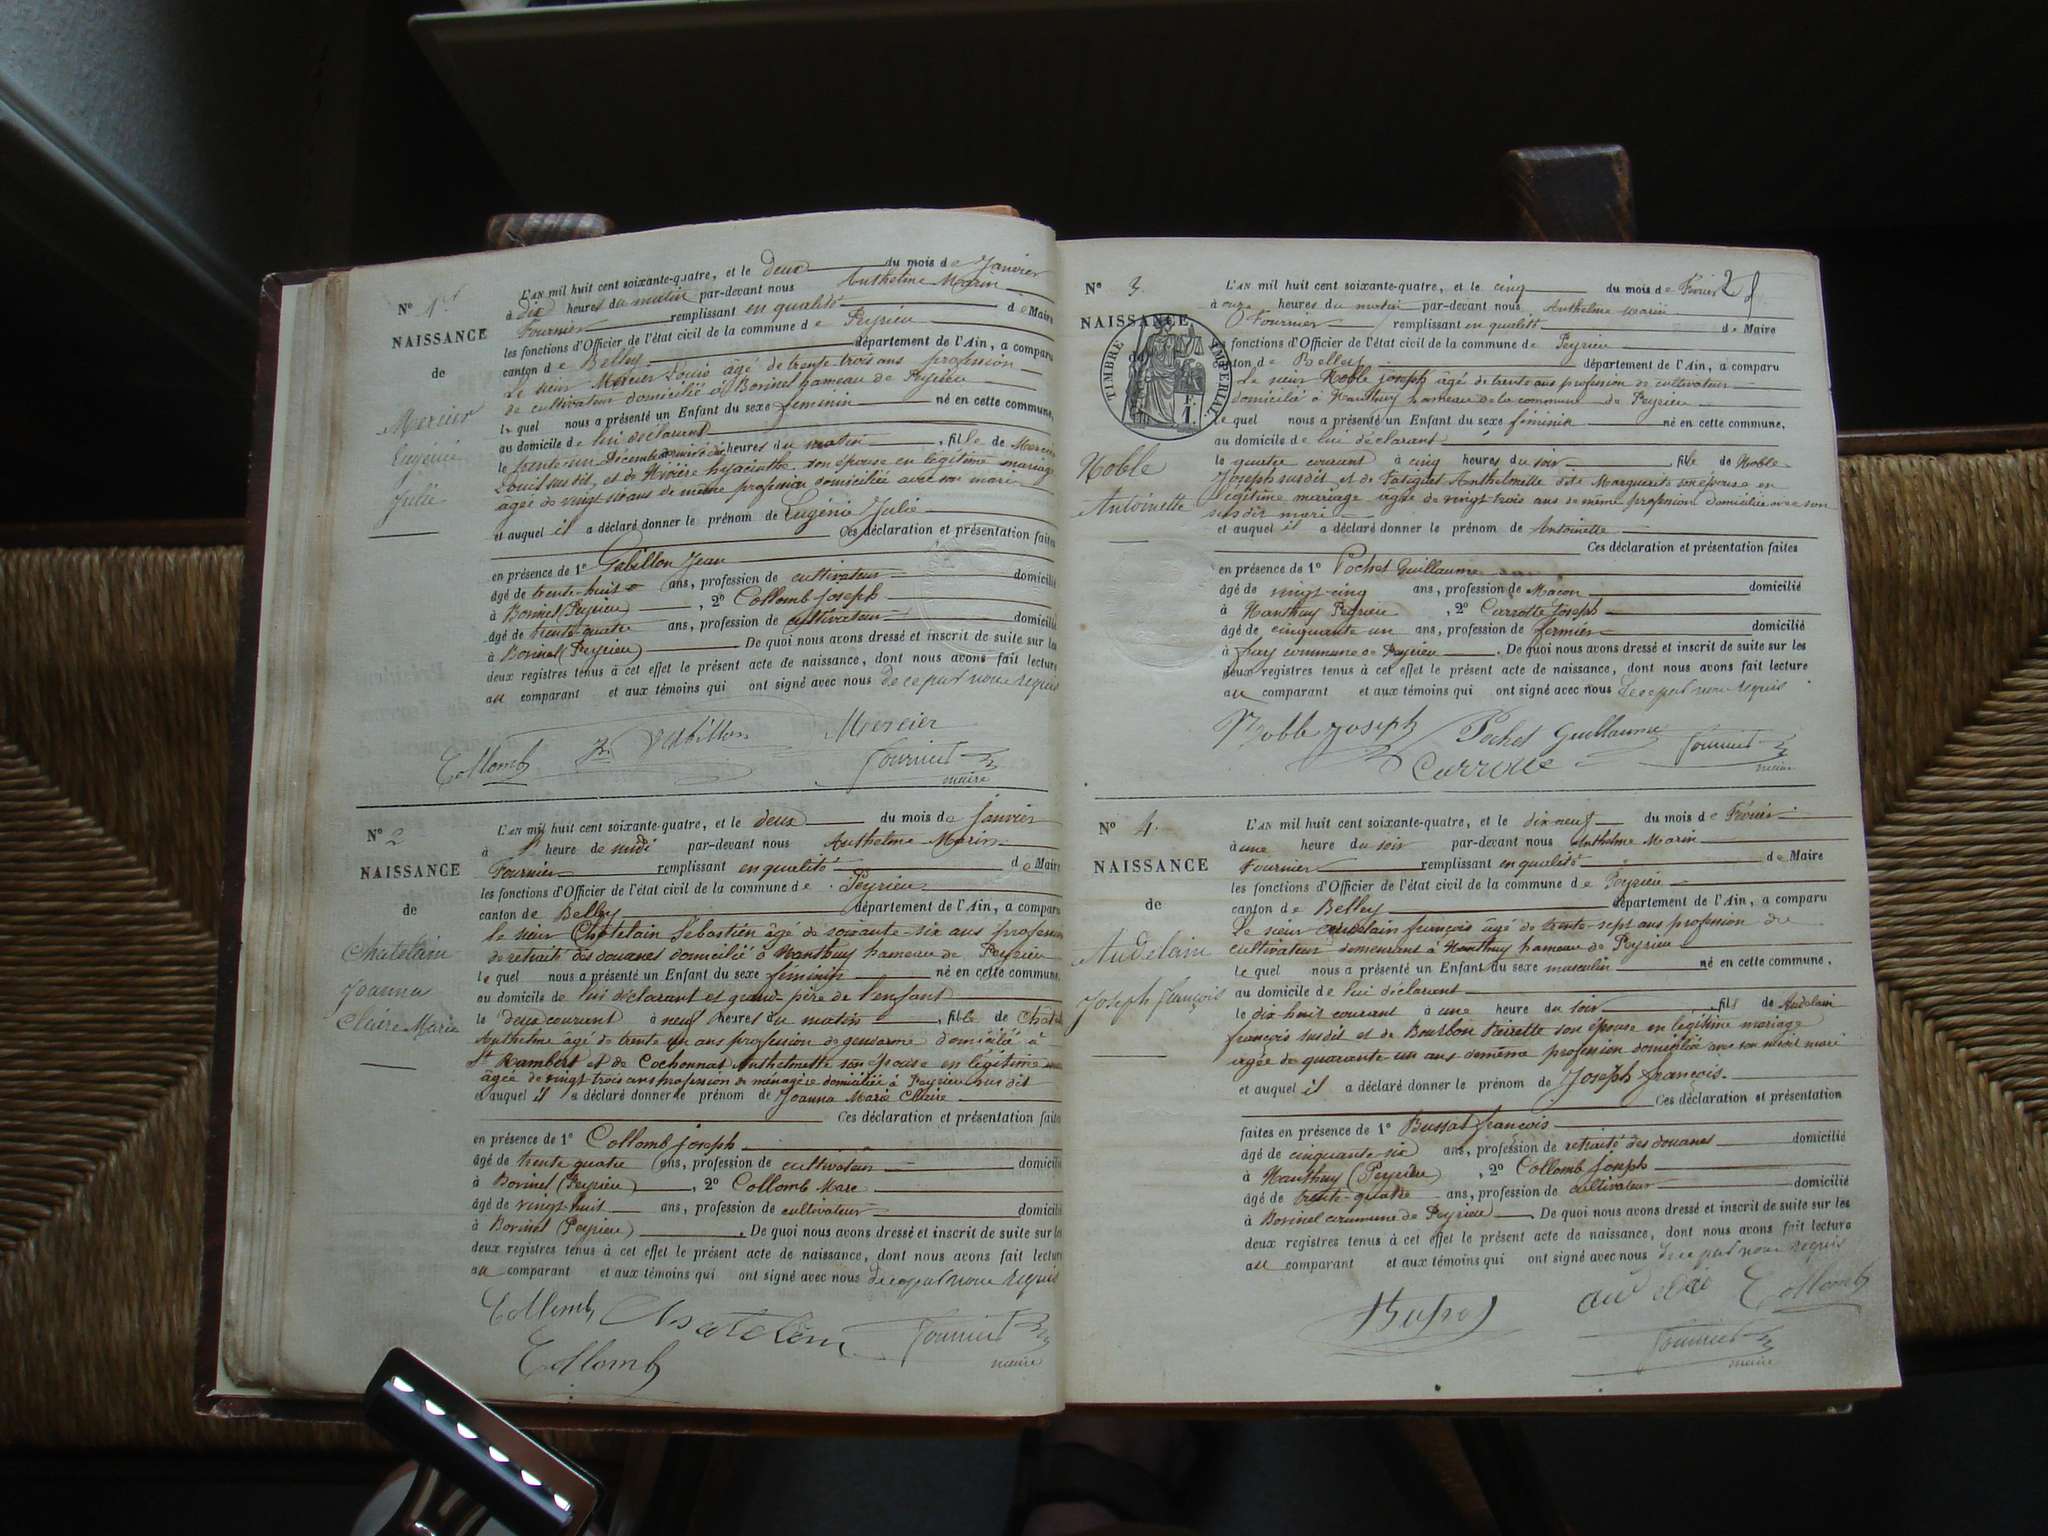 N° 1er
NAISSANCE
de
Mercier
Eugénie
Julie
L'AN mil huit cent soixante-quatre, et le deux du mois de Janvier
à dix heures du matin par-devant nous Anthelme Marin
Fournier remplissant en qualité de Maire
les fonctions d'Officier de l'état civil de la commune de Peyrieu
canton de Belley département de l'Ain, a comparu
Le sieur Mercier Louis âgé de trente-trois ans profession
de cultivateur domicilié à Borinel hameau de Peyrieu
lequel nous a présenté un Enfant du sexe féminin né en cette commune,
au domicile de lui déclarant
le trente-un Décembre heures du matin, fille de Mercier
Louis susdit, et de Rivière hyacinthe son épouse en légitime mariage
agée de vingt six ans de même profession domiciliée avec son mari
et auquel il a déclaré donner le prénom de Eugénie Julie
Ces déclaration et présentation faites
en présence de 1° Gabillon Jean
âgé de trente-huit ans, profession de cultivateur domicilié
à Borinel (Peyrieu), 2° Collomb Joseph
âgé de trente-quatre ans, profession de cultivateur domicilié
à Borinel (Peyrieu) De quoi nous avons dressé et inscrit de suite sur les
deux registres tenus à cet effet le présent acte de naissance, dont nous avons fait lecture
au comparant et aux témoins qui ont signé avec nous de ce par nous requis
Collomb Gabillon Mercier
Fournier
maire
N° 2
NAISSANCE
de
Chatelain
Joanna
Claire Marie
L'AN mil huit cent soixante-quatre, et le deux du mois de Janvier
à heure de midi par-devant nous Anthelme Marin
Fournier remplissant en qualité de Maire
les fonctions d'Officier de l'état civil de la commune de Peyrieu
canton de Belley département de l'Ain, a comparu
le sieur Chatelain Sébastien âgé de soixante-six ans profession
de retraité des douanes domicilié à Nanthuy hameau de Peyrieu
lequel nous a présenté un Enfant du sexe féminin né en cette commune,
au domicile de lui déclarant et grand-père de l'enfant
le deux courant à neuf heures du matin, fille de Chatelain
Anthelme âgé de trente un ans profession de gendarme domicilié à
St Rambert et de Cochonnat Anthelmette son épouse en légitime
âgée de vingt trois ans profession de ménagère domiciliée à Peyrieu susdit
et auquel il a déclaré donner le prénom de Joanna Marie Claire
Ces déclaration et présentation faites
en présence de 1° Collomb Joseph
âgé de trente quatre ans, profession de cultivateur domicilié
à Borinel (Peyrieu), 2° Collomb Marc
âgé de vingt-huit ans, profession de cultivateur domicilié
à Borinel (Peyrieu). De quoi nous avons dressé et inscrit de suite sur les
deux registres tenus à cet effet le présent acte de naissance, dont nous avons fait lecture
au comparant et aux témoins qui ont signé avec nous de ce par nous requis
Collomb Chatelain Fournier
maire
Collomb
N° 3
NAISSANCE
de
TIMBRE IMPERIAL
1 F.
Noble
Antoinette
L'AN mil huit cent soixante-quatre, et le cinq du mois de Février 2
à onze heures du matin par-devant nous Anthelme Marin
Fournier remplissant en qualité de Maire
les fonctions d'Officier de l'état civil de la commune de Peyrieu
canton de Belley département de l'Ain, a comparu
Le sieur Noble Joseph âgé de trente ans profession de cultivateur
domicilié à Nanthuy hameau de la commune de Peyrieu
lequel nous a présenté un Enfant du sexe féminin né en cette commune,
au domicile de lui déclarant
le quatre courant à cinq heures du soir fille de Noble
Joseph susdit et de Anthelmette dite Marguerite son épouse en
légitime mariage agée de vingt trois ans de même profession domiciliée avec son
susdit mari
et auquel il a déclaré donner le prénom de Antoinette
Ces déclaration et présentation faites
en présence de 1° Pochet Guillaume
âgé de vingt-cinq ans, profession de Maçon domicilié
à Nanthuy Peyrieu, 2° Carrotte Joseph
âgé de cinquante un ans, profession de fermier domicilié
à Fay commune de Peyrieu. De quoi nous avons dressé et inscrit de suite sur les
deux registres tenus à cet effet le présent acte de naissance, dont nous avons fait lecture
au comparant et aux témoins qui ont signé avec nous de ce par nous requis
Noble Joseph Pochet Guillaume Fournier
maire
Carrotte
N° 4
NAISSANCE
de
Audelain
Joseph françois
L'AN mil huit cent soixante-quatre, et le dix-neuf du mois de Février
à une heure du soir par-devant nous Anthelme Marin
Fournier remplissant en qualité de Maire
les fonctions d'Officier de l'état civil de la commune de Peyrieu
canton de Belley département de l'Ain, a comparu
Le sieur audelain françois âgé de trente-sept ans profession de
cultivateur demeurant à Nanthuy hameau de Peyrieu
lequel nous a présenté un Enfant du sexe masculin né en cette commune,
au domicile de lui déclarant
le dix huit courant à une heure du soir fils de Audelain
françois susdit et de Bourbon Pierrette son épouse en légitime mariage
agée de quarante un ans de même profession domiciliée avec son susdit mari
et auquel il a déclaré donner le prénom de Joseph françois.
Ces déclaration et présentation
faites en présence de 1° Bussat françois
âgé de cinquante-six ans, profession de retraité des douanes domicilié
à Nanthuy (Peyrieu), 2° Collomb Joseph
âgé de trente-quatre ans, profession de cultivateur domicilié
à Borinel commune de Peyrieu. De quoi nous avons dressé et inscrit de suite sur les
deux registres tenus à cet effet le présent acte de naissance, dont nous avons fait lecture
au comparant et aux témoins qui ont signé avec nous de ce par nous requis
Collomb
Fournier
maire